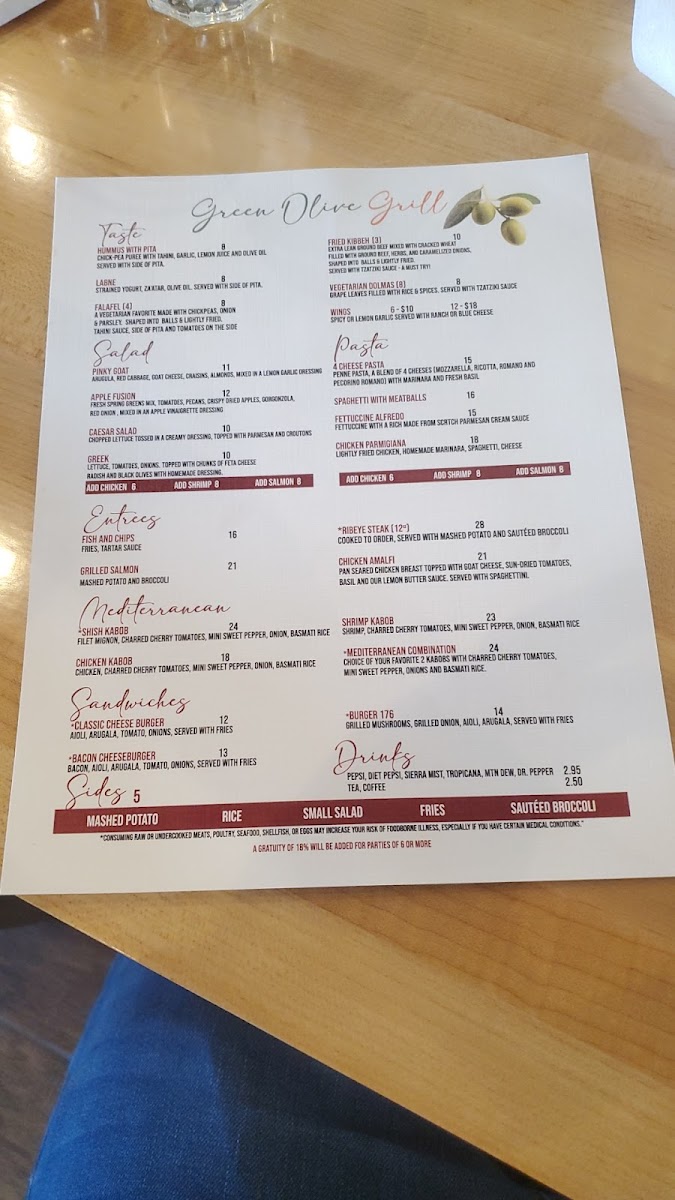 Green Olive Grill
Taste
HUMMUS WITH PITA 8
CHICK-PEA PUREE WITH TAHINI, GARLIC, LEMON JUICE AND OLIVE OIL
SERVED WITH SIDE OF PITA.
LABNE 8
STRAINED YOGURT, ZA'ATAR, OLIVE OIL. SERVED WITH SIDE OF PITA.
FALAFEL (4) 8
A VEGETARIAN FAVORITE MADE WITH CHICKPEAS, ONION
& PARSLEY. SHAPED INTO BALLS & LIGHTLY FRIED.
TAHINI SAUCE, SIDE OF PITA AND TOMATOES ON THE SIDE
FRIED KIBBEH (3) 10
EXTRA LEAN GROUND BEEF MIXED WITH CRACKED WHEAT
FILLED WITH GROUND BEEF, HERBS, AND CARAMELIZED ONIONS,
SHAPED INTO BALLS & LIGHTLY FRIED.
SERVED WITH TZATZIKI SAUCE - A MUST TRY!
VEGETARIAN DOLMAS (8) 8
GRAPE LEAVES FILLED WITH RICE & SPICES. SERVED WITH TZATZIKI SAUCE
WINGS 6 - $10 12 - $18
SPICY OR LEMON GARLIC SERVED WITH RANCH OR BLUE CHEESE
Salad
PINKY GOAT 11
ARUGULA, RED CABBAGE, GOAT CHEESE, CRAISINS, ALMONDS, MIXED IN A LEMON GARLIC DRESSING
APPLE FUSION 12
FRESH SPRING GREENS MIX, TOMATOES, PECANS, CRISPY DRIED APPLES, GORGONZOLA,
RED ONION , MIXED IN AN APPLE VINAIGRETTE DRESSING
CAESAR SALAD 10
CHOPPED LETTUCE TOSSED IN A CREAMY DRESSING, TOPPED WITH PARMESAN AND CROUTONS
GREEK 10
LETTUCE, TOMATOES, ONIONS. TOPPED WITH CHUNKS OF FETA CHEESE
RADISH AND BLACK OLIVES WITH HOMEMADE DRESSING.
ADD CHICKEN 6 ADD SHRIMP 8 ADD SALMON 8
Pasta
4 CHEESE PASTA 15
PENNE PASTA, A BLEND OF 4 CHEESES (MOZZARELLA, RICOTTA, ROMANO AND
PECORINO ROMANO) WITH MARINARA AND FRESH BASIL
SPAGHETTI WITH MEATBALLS 16
FETTUCCINE ALFREDO 15
FETTUCCINE WITH A RICH MADE FROM SCRTCH PARMESAN CREAM SAUCE
CHICKEN PARMIGIANA 18
LIGHTLY FRIED CHICKEN, HOMEMADE MARINARA, SPAGHETTI, CHEESE
ADD CHICKEN 6 ADD SHRIMP 8 ADD SALMON 8
Entrees
FISH AND CHIPS 16
FRIES, TARTAR SAUCE
GRILLED SALMON 21
MASHED POTATO AND BROCCOLI
*RIBEYE STEAK (12oz) 28
COOKED TO ORDER, SERVED WITH MASHED POTATO AND SAUTÉED BROCCOLI
CHICKEN AMALFI 21
PAN SEARED CHICKEN BREAST TOPPED WITH GOAT CHEESE, SUN-DRIED TOMATOES,
BASIL AND OUR LEMON BUTTER SAUCE. SERVED WITH SPAGHETTINI.
Mediterranean
*SHISH KABOB 24
FILET MIGNON, CHARRED CHERRY TOMATOES, MINI SWEET PEPPER, ONION, BASMATI RICE
CHICKEN KABOB 18
CHICKEN, CHARRED CHERRY TOMATOES, MINI SWEET PEPPER, ONION, BASMATI RICE
SHRIMP KABOB 23
SHRIMP, CHARRED CHERRY TOMATOES, MINI SWEET PEPPER, ONION, BASMATI RICE
*MEDITERRANEAN COMBINATION 24
CHOICE OF YOUR FAVORITE 2 KABOBS WITH CHARRED CHERRY TOMATOES,
MINI SWEET PEPPER, ONIONS AND BASMATI RICE.
Sandwiches
*CLASSIC CHEESE BURGER 12
AIOLI, ARUGULA, TOMATO, ONIONS, SERVED WITH FRIES
*BACON CHEESEBURGER 13
BACON, AIOLI, ARUGULA, TOMATO, ONIONS, SERVED WITH FRIES
*BURGER 176 14
GRILLED MUSHROOMS, GRILLED ONION, AIOLI, ARUGULA, SERVED WITH FRIES
Drinks
PEPSI, DIET PEPSI, SIERRA MIST, TROPICANA, MTN DEW, DR. PEPPER 2.95
TEA, COFFEE 2.50
Sides 5
MASHED POTATO RICE SMALL SALAD FRIES SAUTÉED BROCCOLI
"*CONSUMING RAW OR UNDERCOOKED MEATS, POULTRY, SEAFOOD, SHELLFISH, OR EGGS MAY INCREASE YOUR RISK OF FOODBORNE ILLNESS, ESPECIALLY IF YOU HAVE CERTAIN MEDICAL CONDITIONS."
A GRATUITY OF 18% WILL BE ADDED FOR PARTIES OF 6 OR MORE